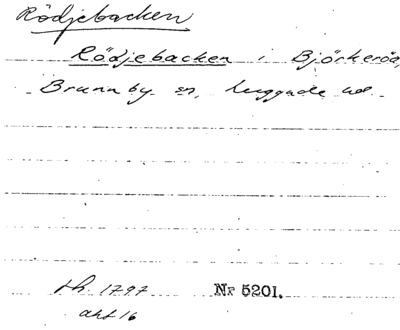 Rödjebacken
Rödjebacken i Björkeröd,
Brunnby sn, huggude ved.
th. 1797 Nr 5201.
akt 16